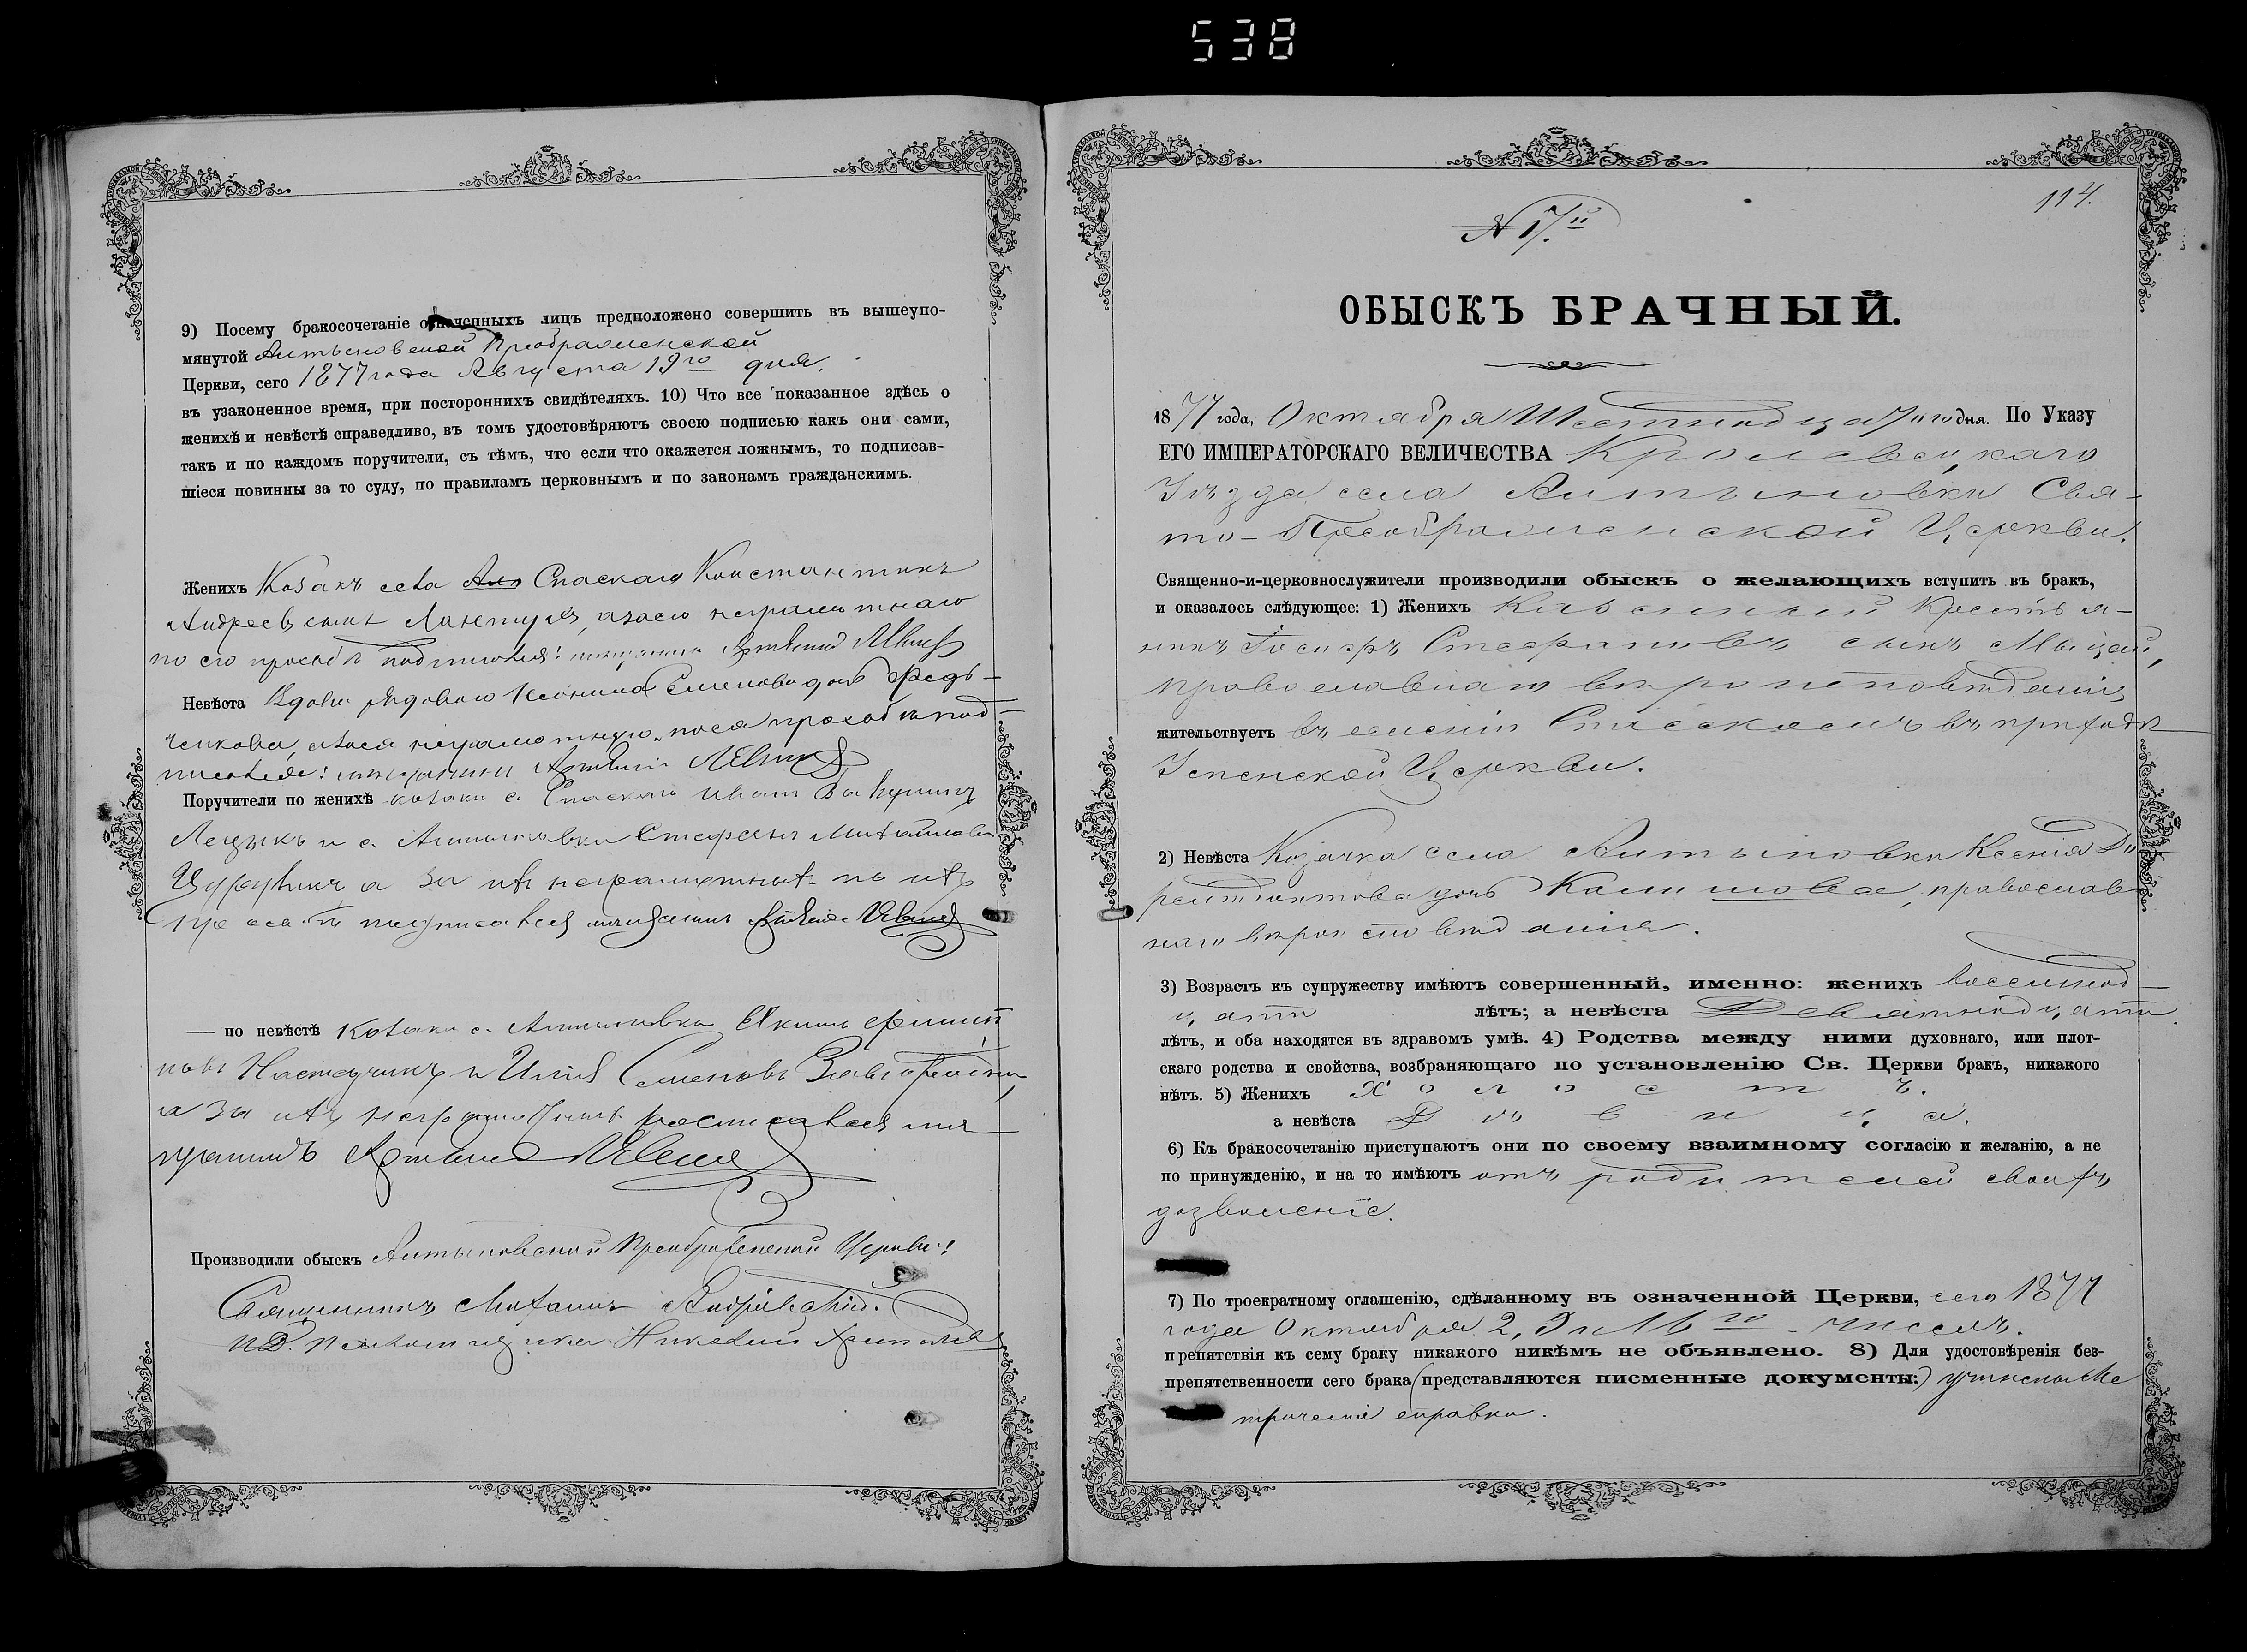 538
9) Посему бракосочетаніе означенныхъ лицъ предположено совершить въ вышеупо-
мянутой Алтыновской Преображенской
Церкви, сего 1877 года Августа 19го дня.
въ узаконенное время, при постороннихъ свидѣтеляхъ. 10) Что все показанное здѣсь о
женихѣ и невѣстѣ справедливо, въ томъ удостовѣряютъ своею подписью какъ они сами,
такъ и по каждомъ поручители, съ тѣмъ, что если что окажется ложнымъ, то подписав-
шіеся повинны за то суду, по правиламъ церковнымъ и по законамъ гражданскимъ.
Женихъ Козакъ села Спаскаго Константинъ
Андреевъ сынъ а за его неграмотнаго
по его прозьбѣ подписался: мѣщанинъ
Невѣста Вдова рядового Ксенія Семенова дочь Федь-
ченкова, а за ея неграмотную, по ея прозьбѣ под-
писался: мѣщанинъ
Поручители по женихѣ козаки с. Спаскаго Иванъ
и с. Алтыновки Стефанъ Михайловъ
а за ихъ неграмотныхъ по ихъ
прозьбѣ подписался мѣщанинъ
— по невѣстѣ Козаки с. Алтыновки Якимъ Филип-
повъ и Илія Семеновъ
а за ихъ неграмотныхъ росписался мѣ-
щанинъ
Производили обыскъ Алтыновской Преображенской Церкви:
Священникъ Михаилъ
И.Д. Псаломщика Николай
114.
N 17.й
ОБЫСКЪ БРАЧНЫЙ.
1877 года, Октября Шестнадцатого дня. По Указу
ЕГО ИМПЕРАТОРСКАГО ВЕЛИЧЕСТВА Кролевецкаго
Уѣзда села Алтыновки Свя-
то-Преображенской Церкви.
Священно-и-церковнослужители производили обыскъ о желающихъ вступить въ бракъ,
и оказалось слѣдующее: 1) Женихъ Казенный Крестья-
нинъ Іосифъ Стефановъ сынъ Мыцай,
православнаго вѣроисповѣданія,
жительствуетъ въ селеніи Спасскомъ въ приходѣ
Успенской Церкви.
2) Невѣста Козачка села Алтыновки Ксенія До-
рофеевна дочь православ-
наго вѣроисповѣданія.
3) Возрастъ къ супружеству имѣютъ совершенный, именно: женихъ восемнад-
цати лѣтъ; а невѣста Девятнадцати
лѣтъ, и оба находятся въ здравомъ умѣ. 4) Родства между ними духовнаго, или плот-
скаго родства и свойства, возбраняющаго по установленію Св. Церкви бракъ, никакого
нѣтъ. 5) Женихъ Холостъ.
а невѣста Дѣвица.
6) Къ бракосочетанію приступаютъ они по своему взаимному согласію и желанію, а не
по принужденію, и на то имѣютъ отъ родителей своихъ
дозволеніе.
7) По троекратному оглашенію, сдѣланному въ означенной Церкви, сего 1877
года Октября 2, 9 и 16го чиселъ.
препятствія къ сему браку никакого никѣмъ не объявлено. 8) Для удостовѣренія без-
препятственности сего брака (представляются писменные документы:) учинены Ме
трическіе справки.